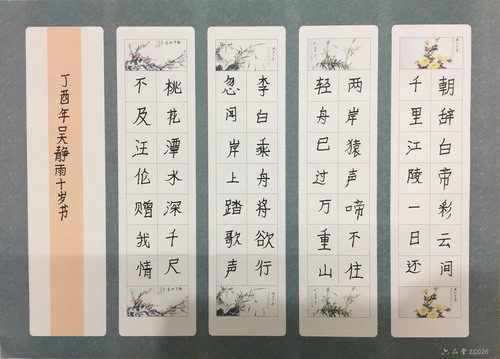 朝辞白帝彩云间
千里江陵一日还
两岸猿声啼不住
轻舟已过万重山
李白乘舟将欲行
忽闻岸上踏歌声
桃花潭水深千尺
不及汪伦赠我情
丁酉年吴静雨十岁书
六品堂